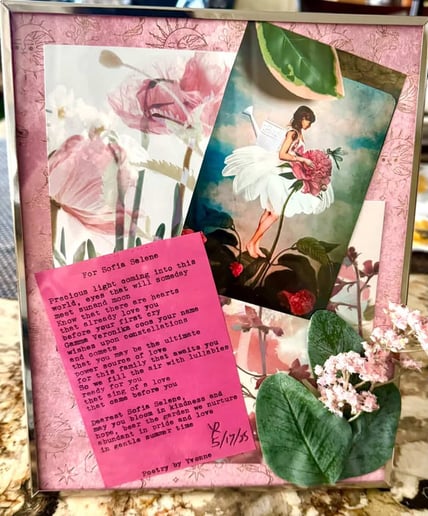 For Sofia Selene
Precious light coming into this
world, eyes that will someday
meet sunand moon
Know that there are hearts
that already love you
before your first cry
Gamma Veronika coos your name
wishes upon constellations
and comets
that you may be the ultimate
tower source of love
for this family that awaits you
So we fill the air with lullabies
ready for you
that sing of a love
that came before you
Dearest Sofia Selene,
may you bloom in kindness and
hope, bear the garden we nurture
abundant in pride and love
in gentle summer time
5/17/25
Poetry by Yvonne